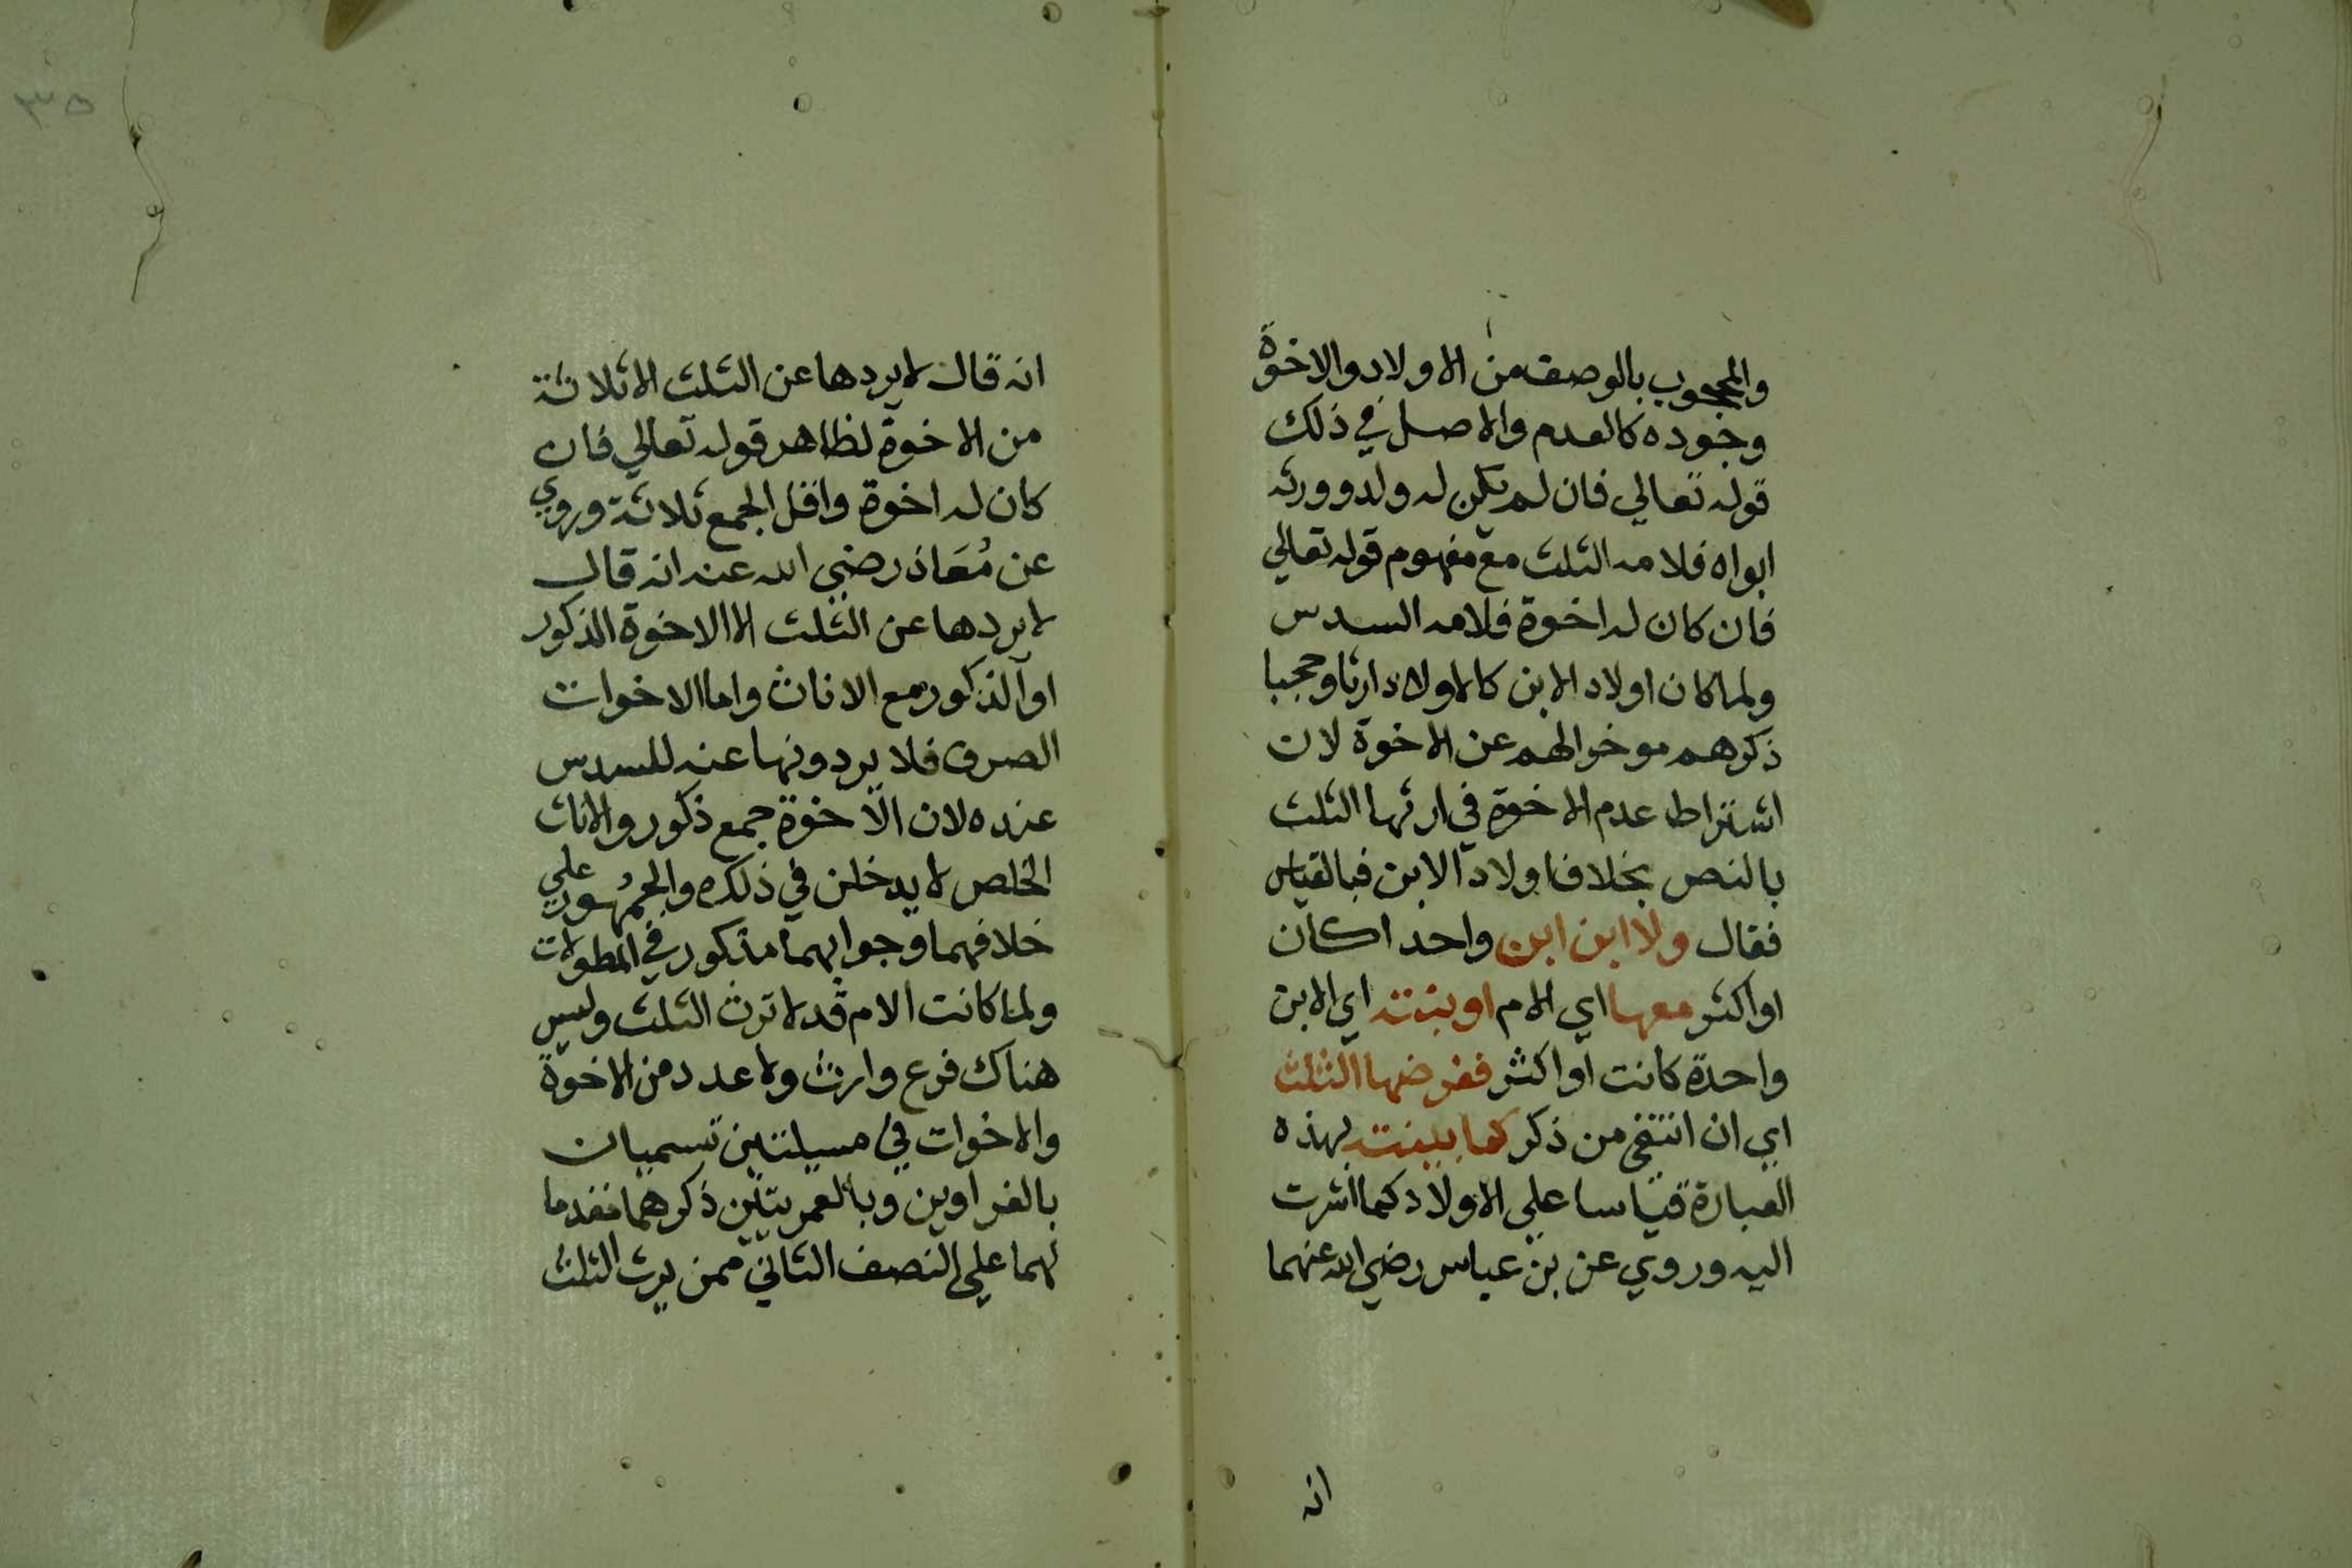 والمحجوب بالوصف من الاولاد والاخوة
وجوده كالعدم والاصل في ذلك
قوله تعالي فان لم يكن له ولد وورثه
ابواه فلامه الثلث مع مفهوم قوله تعالي
فان كان له اخوة فلامه السدس
ولما كان اولاد الابن كالاولاد ارثا وحجبا
ذكرهم موخرا لهم عن الاخوة لان
اشتراط عدم الاخوة في ارثها الثلث
بالنص بخلاف اولاد الابن فبالقياس
فقال ولا ابن ابن واحدا كان
او اكثر معها اي الام او بنته اي الابن
واحدة كانت او اكثر ففرضها الثلث
اي ان انتفي من ذكر كما بينته بهذه
العبارة قياسا علي الاولاد كما اشرت
اليه وروي عن بن عباس رضي الله عنهما
انه
٣٥
انه قال لا يردها عن الثلث الا ثلاثة
من الاخوة لظاهر قوله تعالي فان
كان له اخوة واقل الجمع ثلاثة وروي
عن مُعَاذ رضي الله عنه انه قال
لا يردها عن الثلث الا الاخوة الذكور
او الذكور مع الاناث واما الاخوات
الصرف فلا يردونها عنه للسدس
عنده لان الاخوة جمع ذكور والاناث
الخلص لا يدخلن في ذلك والجمهُور علي
خلافهما وجوابهما مذكور في المطولات
ولما كانت الام قد لا ترث الثلث وليس
هناك فرع وارث ولا عدد من الاخوة
والاخوات في مسيلتين تسميان
بالغراوين وبالعمريتين ذكرهما مقدما
لهما علي النصف الثاني ممن يرث الثلث